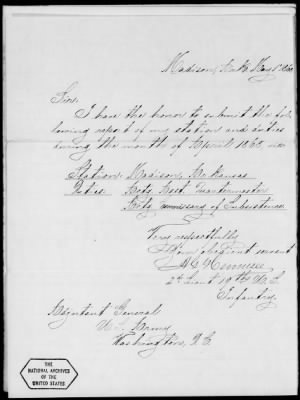 Madison, Ark. May 1st 186
Sir.
I have the honor to submit the fol-
lowing report of my station and duties
during the month of April 1865, viz:
Station Madison, Arkansas
Duties Post Quartermaster
Commissary of Subsistence
Very respectfully
Your obedient servant
2d Lieut 19th U.S.
Infantry.
Adjutant General
U.S. Army
Washington, D.C.
THE
NATIONAL ARCHIVES
OF THE
UNITED STATES